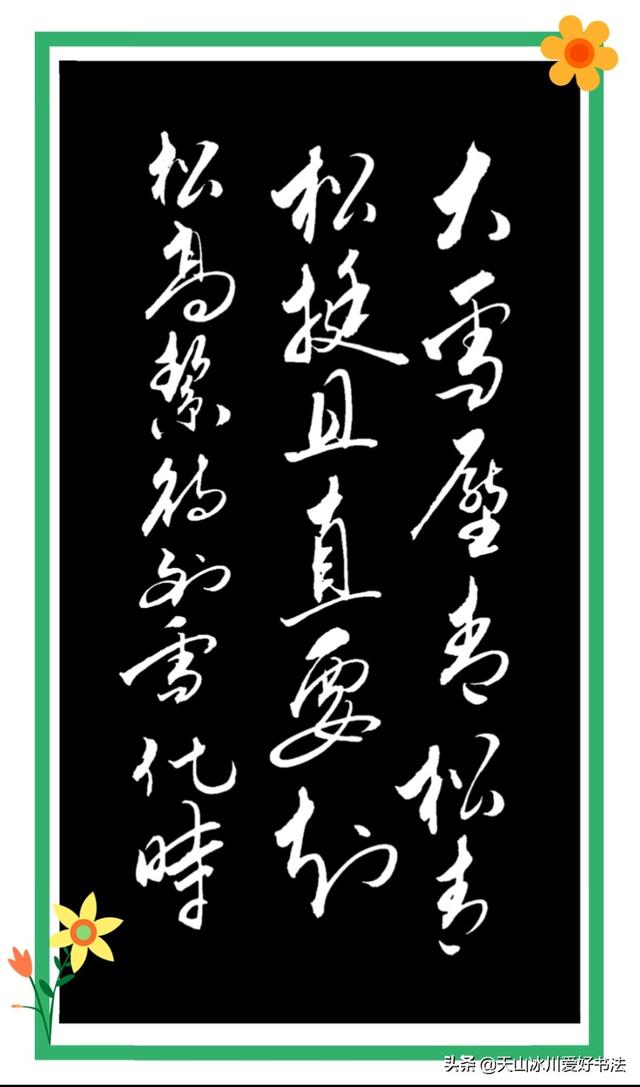 大雪壓青松青
松挺且直要知
松高絜待到雪化時
头条 @天山冰川爱好书法